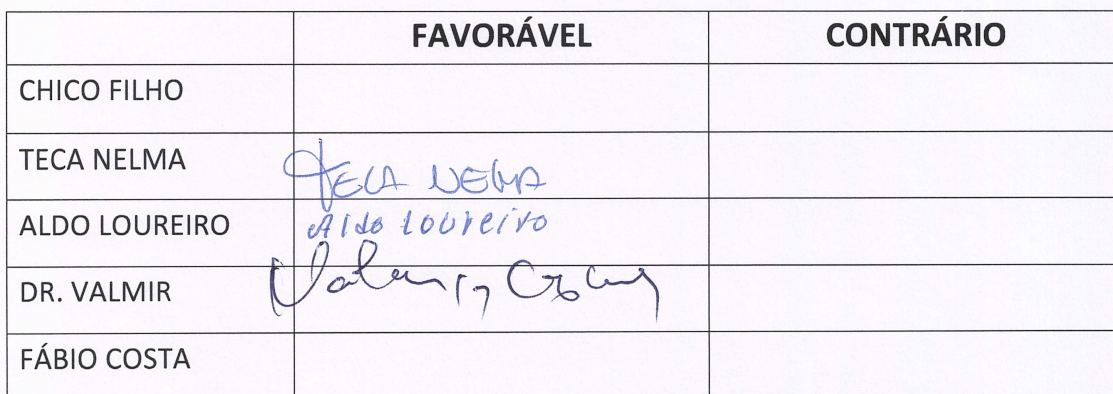 FAVORÁVEL CONTRÁRIO
CHICO FILHO
TECA NELMA TECA NELMA
ALDO LOUREIRO Aldo Loureiro
DR. VALMIR
FÁBIO COSTA